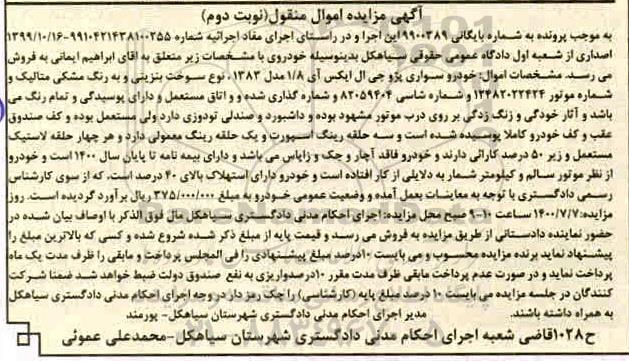 آگهی مزایده اموال منقول(نوبت دوم)
به موجب پرونده به شماره بایگانی ۹۹۰۰۳۸۹ این اجرا و در راستای اجرای مفاد اجرائیه شماره ۹۹۱۰۴۲۱۴۳۸۱۰۰۲۵۵-۱۳۹۹/۱۰/۱۶
اصداری از شعبه اول دادگاه عمومی حقوقی سیاهکل بدینوسیله خودروی با مشخصات زیر متعلق به اقای ابراهیم ایمانی به فروش
می رسد. مشخصات اموال: خودرو سواری پژو جی ال ایکس آی ۱/۸ مدل ۱۳۸۳، نوع سوخت بنزینی و به رنگ مشکی متالیک و
شماره موتور ۱۲۴۸۲۰۲۲۴۲۴ و شماره شاسی ۸۲۰۵۹۴۰۴ و شماره گذاری شده و و اتاق مستعمل و دارای پوسیدگی و تمام رنگ می
باشد و آثار خودگی و زنگ زدگی بر روی درب موتور مشهود بوده و داشبورد و صندلی تودوزی دارد ولی مستعمل بوده و کف صندوق
عقب و کف خودرو کاملا پوسیده شده است و سه حلقه رینگ اسپورت و یک حلقه رینگ معمولی دارد و هر چهار حلقه لاستیک
مستعمل و زیر ۵۰ درصد کارائی دارند و خودرو فاقد آچار و جک و زاپاس می باشد و دارای بیمه نامه تا پایان سال ۱۴۰۰ است و خودرو
از نظر موتور سالم و کیلومتر شمار به دلایلی از کار افتاده است و خودرو دارای استهلاک بالای ۴۰ درصد است، که از سوی کارشناس
رسمی دادگستری با توجه به معاینات بعمل آمده و وضعیت عمومی خودرو به مبلغ ۳۷۵/۰۰۰/۰۰۰ ریال برآورد گردیده است. روز
مزایده:۱۴۰۰/۷/۷ ساعت ۱۰-۹ صبح محل مزایده: اجرای احکام مدنی دادگستری سیاهکل مال فوق الذکر با اوصاف بیان شده در
حضور نماینده دادستانی از طریق مزایده به فروش می رسد و قیمت پایه از مبلغ ذکر شده شروع شده و کسی که بالاترین مبلغ را
پیشنهاد نماید برنده مزایده محسوب و می بایست ۱۰درصد مبلغ پیشنهادی را فی المجلس پرداخت و مابقی را ظرف مدت یک ماه
پرداخت نماید و در صورت عدم پرداخت مابقی ظرف مدت مقرر ۱۰درصدواریزی به نفع صندوق دولت ضبط خواهد شد ضمنا شرکت
کنندگان در جلسه مزایده می بایست ۱۰ درصد مبلغ پایه (کارشناسی) را چک رمز دار در وجه اجرای احکام مدنی دادگستری سیاهکل
به همراه داشته باشند. مدیر اجرای احکام مدنی دادگستری شهرستان سیاهکل- پورمند
ح۱۰۲۸ قاضی شعبه اجرای احکام مدنی دادگستری شهرستان سیاهکل-محمدعلی عموئی